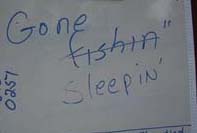 Gone
fishin"
Sleepin'
0257